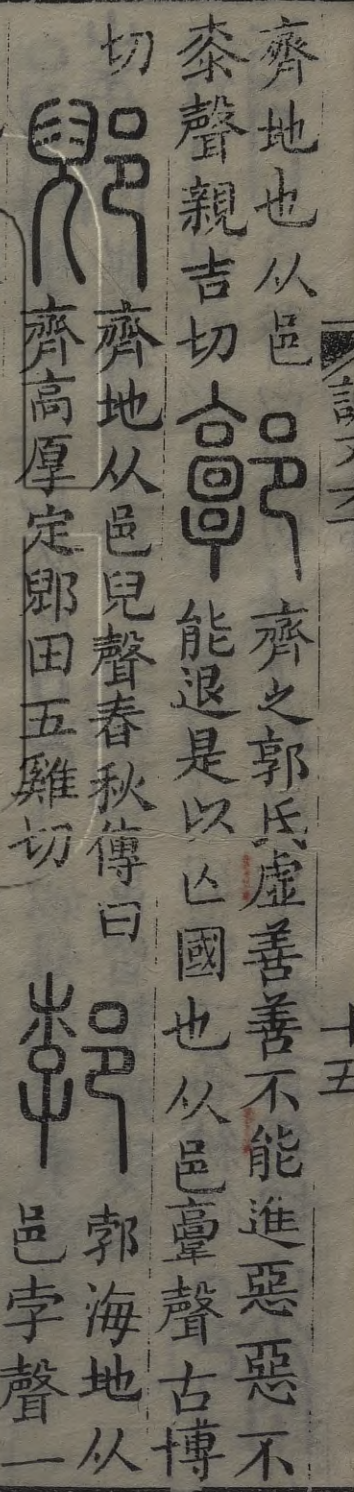 十五
齊地也从邑
桼聲親吉切
郭
齊之郭氏虛善善不能進惡惡不
能退是以亾國也从邑𩫏聲古博
切
郳
齊地从邑兒聲春秋傳曰
齊高厚定郳田五雞切
郣
郣海地从
邑孛聲一